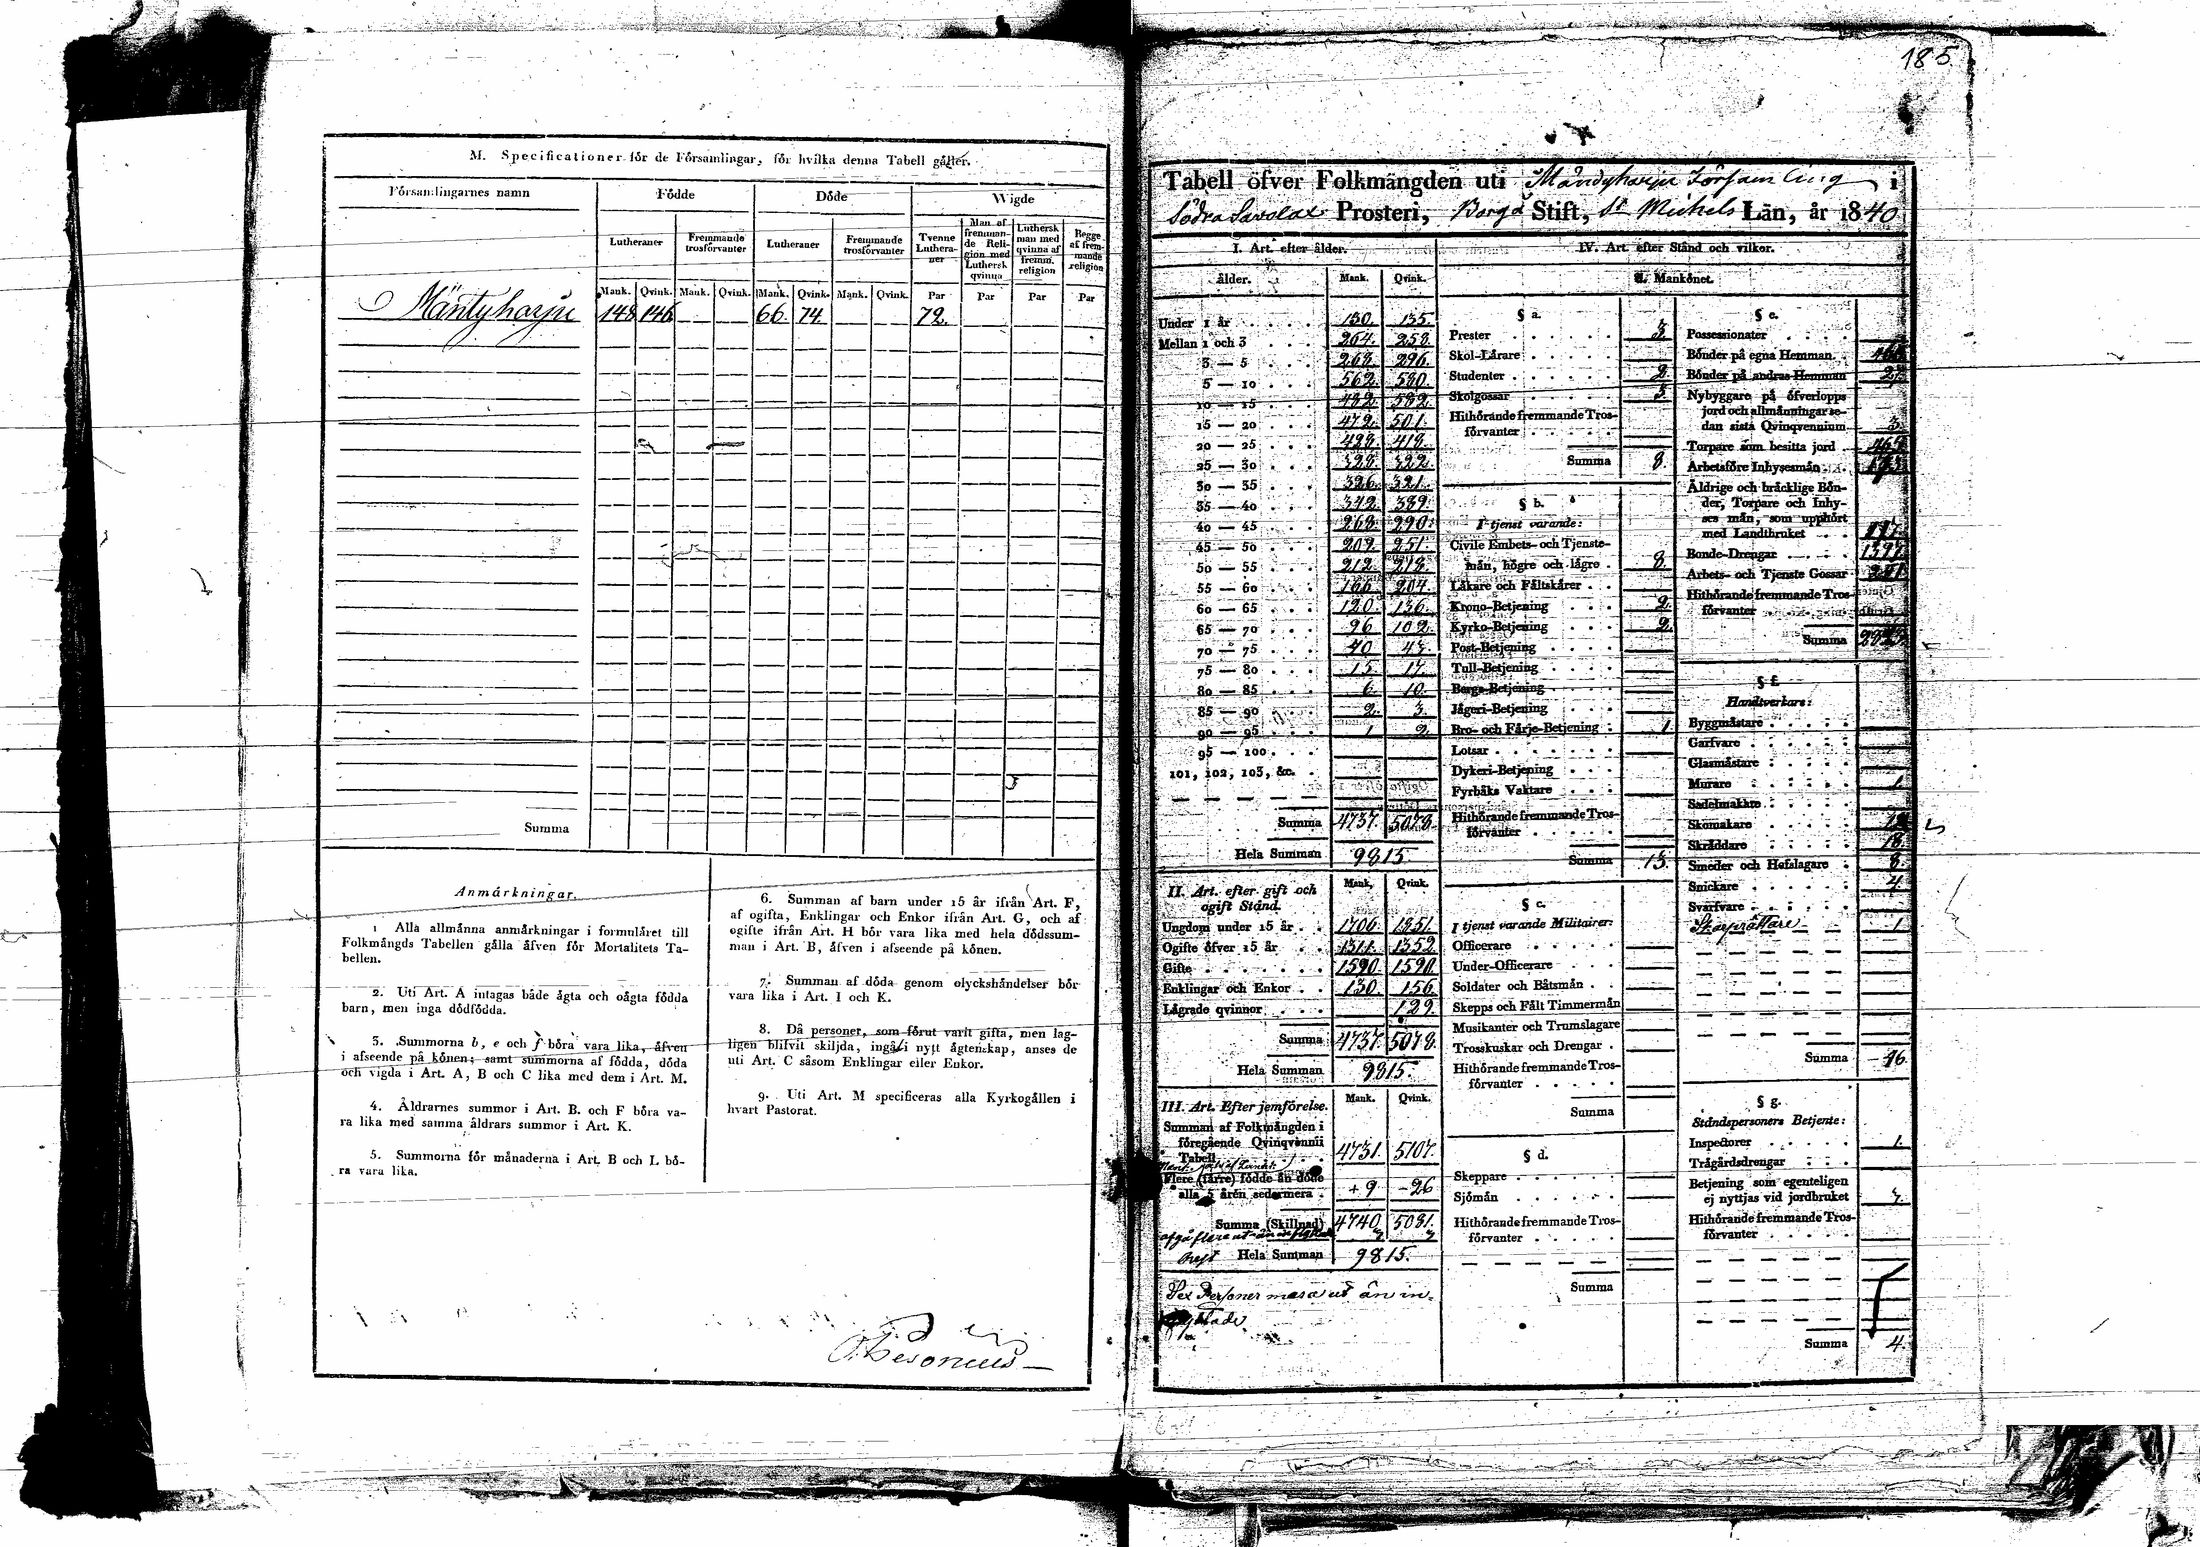 185.
M. Specificationer för de Församlingar, för hvilka denna Tabell gäller.
Församlingarnes namn Födde Döde Wigde
Lutheraner Fremmande trosförvanter Lutheraner Fremmande trosförvanter Tvenne Lutheraner Man af fremmande Religion med Luthersk qvinna Luthersk man med qvinna af fremm. religion Begge af fremmande religion
Mank. Qvink. Mank. Qvink. Mank. Qvink. Mank. Qvink. Par Par Par Par
Mäntyharju 148 146 66. 74. 72.
Summa
Anmärkningar.
1 Alla allmänna anmärkningar i formuläret till
Folkmängds Tabellen gälla äfven för Mortalitets Ta-
bellen.
2. Uti Art. A intagas både ägta och oägta födda
barn, men inga dödfödda.
3. Summorna b, e och f böra vara lika, äfven
i afseende på könen; samt summorna af födda, döda
och vigda i Art. A, B och C lika med dem i Art. M.
4. Åldrarnes summor i Art. B. och F böra va-
ra lika med samma åldrars summor i Art. K.
5. Summorna för månaderna i Art. B och L bö-
ra vara lika.
6. Summan af barn under 15 år ifrån Art. F,
af ogifta, Enklingar och Enkor ifrån Art. G, och af
ogifte ifrån Art. H bör vara lika med hela dödssum-
man i Art. B, äfven i afseende på könen.
7. Summan af döda genom olyckshändelser bör
vara lika i Art. I och K.
8. Då personer, som förut varit gifta, men lag-
ligen blifvit skiljda, ingå i nytt ägtenskap, anses de
uti Art. C såsom Enklingar eller Enkor.
9. Uti Art. M specificeras alla Kyrkogällen i
hvart Pastorat.
Tabell öfver Folkmängden uti Mändyharju Församling i
Södra Savolax Prosteri, Borgå Stift, St Michels Län, år 1840
I. Art. efter ålder.
ålder. Mank. Qvink.
Under 1 år 130. 135.
Mellan 1 och 3 264. 258.
3 — 5 268. 296.
5 — 10 562. 580.
10 — 15 482. 582.
15 — 20 472. 501.
20 — 25 428. 418.
25 — 30 328. 322.
30 — 35 326. 321.
35 — 40 342. 389.
40 — 45 268. 290.
45 — 50 209. 251.
50 — 55 212. 218.
55 — 60 166. 204.
60 — 65 120. 136.
65 — 70 96. 102.
70 — 75 40 43.
75 — 80 15. 17.
80 — 85 6. 10.
85 — 90 2. 3.
90 — 95 1 2.
95 — 100
101, 102, 103, &c.
Summa 4737. 5078.
Hela Summan 9815.
II. Art. efter gift och
ogift Stånd. Mank. Qvink.
Ungdom under 15 år 1706. 1851.
Ogifte öfver 15 år 1311. 1352.
Gifte 1590. 1590.
Enklingar och Enkor 130. 156.
Lägrade qvinnor 129.
Summa 4737. 5078.
Hela Summan 9815.
III. Art. Efter jemförelse. Mank. Qvink.
Summan af Folkmängden i
föregående Qvinqvennii
Tabell 4731. 5107.
Flere (färre) födde än döde
alla 5 åren sedermera + 9 - 26
Summa (Skillnad) 4740 5081.
3 3
Rest Hela Summan 9815.
Sex Personer mera ut än in-
IV. Art. efter Stånd och vilkor.
a. Mankönet.
§ a.
Prester 3.
Skol-Lärare
Studenter 2.
Skolgossar 3.
Hithörande fremmande Tros-
förvanter
Summa 8.
§ b.
I tjenst varande:
Civile Embets- och Tjenste-
män, högre och lägre 8.
Läkare och Fältskärer
Krono-Betjening 2.
Kyrko-Betjening 2.
Post-Betjening
Tull-Betjening
Bergs-Betjening
Jägeri-Betjening
Bro- och Färje-Betjening 1.
Lotsar
Dykeri-Betjening
Fyrbåks Vaktare
Hithörande fremmande Tros-
förvanter
Summa 13.
§ c.
I tjenst varande Militairer:
Officerare
Under-Officerare
Soldater och Båtsmän
Skepps och Fält Timmermän
Musikanter och Trumslagare
Trosskuskar och Drengar
Hithörande fremmande Tros-
förvanter
Summa
§ d.
Skeppare
Sjömän
Hithörande fremmande Tros-
förvanter
Summa
§ e.
Possessionater
Bönder på egna Hemman
Bönder på andras Hemman 27.
Nybyggare på öfverlopps
jord och allmänningar se-
dan sista Qvinqvennium 3.
Torpare som besitta jord
Arbetsföre Inhysesmän
Äldrige och bräcklige Bön-
der, Torpare och Inhy-
ses män, som upphört
med Landtbruket
Bonde-Drengar
Arbets- och Tjenste Gossar
Hithörande fremmande Tros-
förvanter
Summa
§ f.
Handtverkare:
Byggmästare
Garfvare
Glasmästare
Murare 1.
Sadelmakare
Skomakare
Skräddare 18.
Smeder och Hofslagare 8.
Snickare 4.
Svarfvare
Skarprättare 1
Summa 46.
§ g.
Ståndspersoners Betjente:
Inspectorer 1.
Trägårdsdrengar
Betjening som egenteligen
ej nyttjas vid jordbruket 3.
Hithörande fremmande Tros-
förvanter
Summa 4.